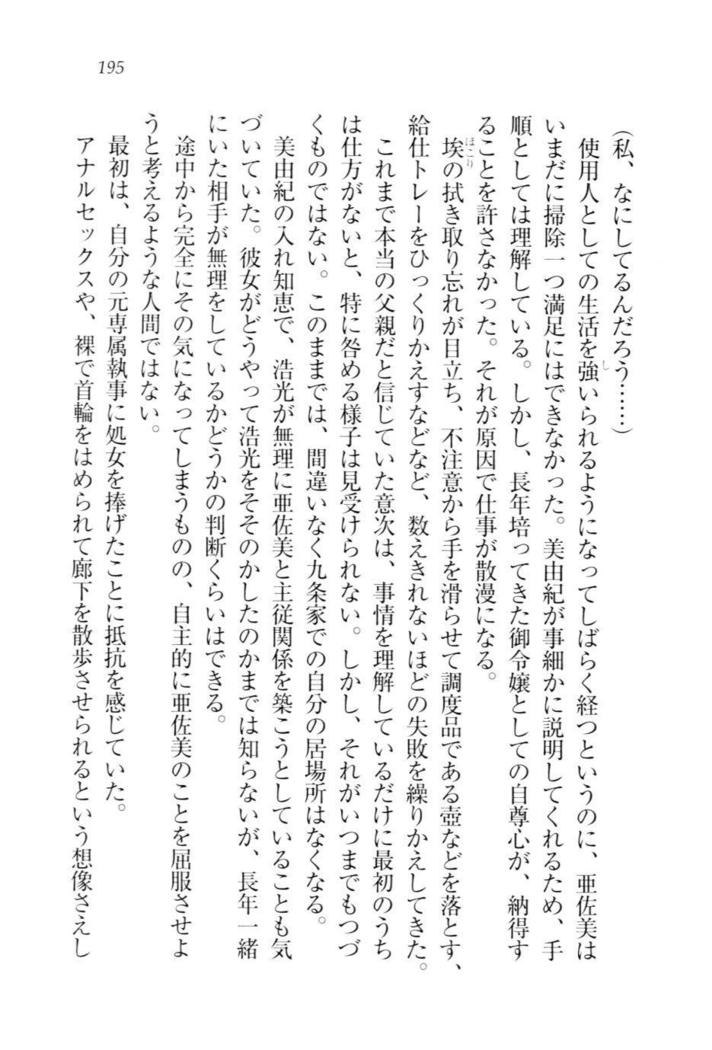 195
(私、なにしてるんだろう……)
使用人としての生活を強いられるようになってしばらく経つというのに、亜佐美は
いまだに掃除一つ満足にはできなかった。美由紀が事細かに説明してくれるため、手
順としては理解している。しかし、長年培ってきた御令嬢としての自尊心が、納得す
ることを許さなかった。それが原因で仕事が散漫になる。
埃の拭き取り忘れが目立ち、不注意から手を滑らせて調度品である壺などを落とす、
給仕トレーをひっくりかえすなどなど、数えきれないほどの失敗を繰りかえしてきた。
これまで本当の父親だと信じていた意次は、事情を理解しているだけに最初のうち
は仕方がないと、特に咎める様子は見受けられない。しかし、それがいつまでもつづ
くものではない。このままでは、間違いなく九条家での自分の居場所はなくなる。
美由紀の入れ知恵で、浩光が無理に亜佐美と主従関係を築こうとしていることも気
づいていた。彼女がどうやって浩光をそそのかしたのかまでは知らないが、長年一緒
にいた相手が無理をしているかどうかの判断くらいはできる。
途中から完全にその気になってしまうものの、自主的に亜佐美のことを屈服させよ
うと考えるような人間ではない。
最初は、自分の元専属執事に処女を捧げたことに抵抗を感じていた。
アナルセックスや、裸で首輪をはめられて廊下を散歩させられるという想像さえし